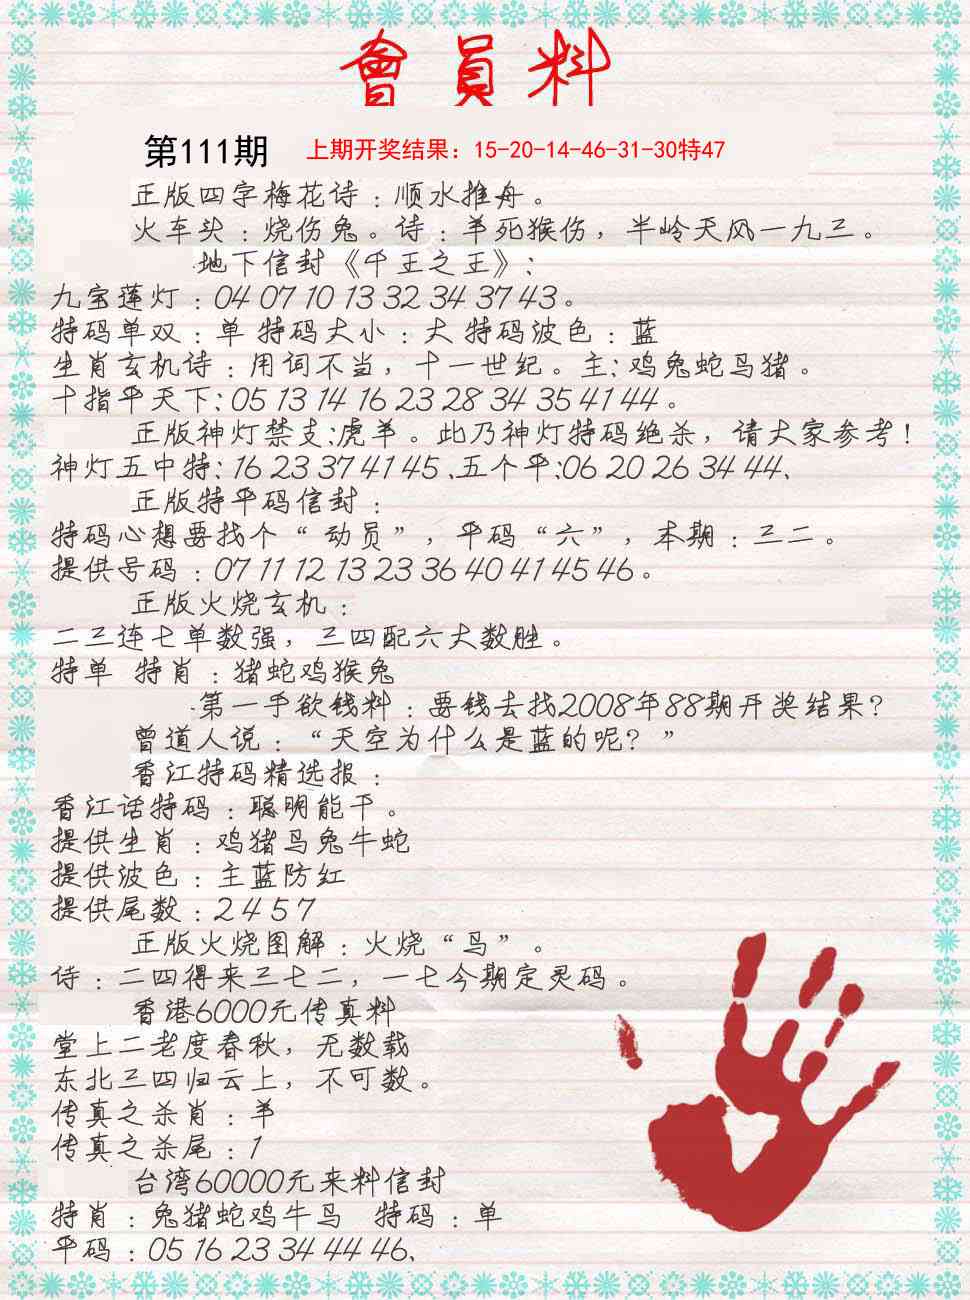 會員料
第111期 上期开奖结果：15-20-14-46-31-30特47
正版四字梅花诗：顺水推舟。
火车头：烧伤兔。诗：羊死猴伤，半岭天风一九三。
·地下信封《千王之王》：
九宝莲灯：04 07 10 13 32 34 37 43。
特码单双：单 特码大小：大 特码波色：蓝
生肖玄机诗：用词不当，十一世纪。主：鸡兔蛇马猪。
十指平天下：05 13 14 16 23 28 34 35 41 44。
正版神灯禁支：虎羊。此乃神灯特码绝杀，请大家参考！
神灯五中特：16 23 37 41 45、五个平：06 20 26 34 44、
正版特平码信封：
特码心想要找个“动员”，平码“六”，本期：三二。
提供号码：07 11 12 13 23 36 40 41 45 46。
正版火烧玄机：
二三连七单数强，三四配六大数胜。
特单 特肖：猪蛇鸡猴兔
·第一手欲钱料：要钱去找2008年88期开奖结果？
曾道人说：“天空为什么是蓝的呢？”
香江特码精选报：
香江话特码：聪明能干。
提供生肖：鸡猪马兔牛蛇
提供波色：主蓝防红
提供尾数：2 4 5 7
正版火烧图解：火烧“鸟”。
诗：二四得来三七二，一七今期定灵码。
香港6000元传真料
堂上二老度春秋，无数载
东北三四归云上，不可数。
传真之杀肖：羊
传真之杀尾：1
台湾60000元来料信封
特肖：兔猪蛇鸡牛马 特码：单
平码：05 16 23 34 44 46、